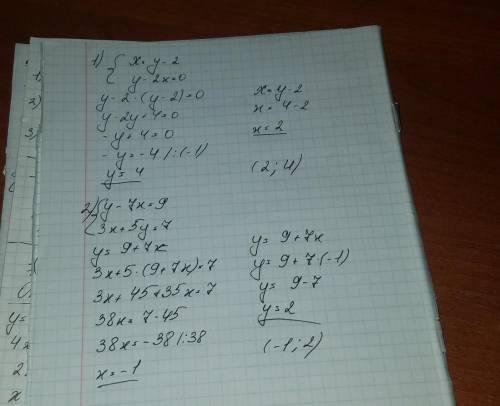 1) { x = y - 2
y - 2x = 0
y - 2 · (y - 2) = 0
y - 2y + 4 = 0
- y + 4 = 0
- y = - 4 / : (-1)
y = 4
x = y - 2
x = 4 - 2
x = 2
(2; 4)
2) { y - 7x = 9
3x + 5y = 7
y = 9 + 7x
3x + 5 · (9 + 7x) = 7
3x + 45 + 35x = 7
38x = 7 - 45
38x = - 38 / : 38
x = - 1
y = 9 + 7x
y = 9 + 7 · (-1)
y = 9 - 7
y = 2
(-1; 2)
1)
2)
3)
y =
4x
2.
x